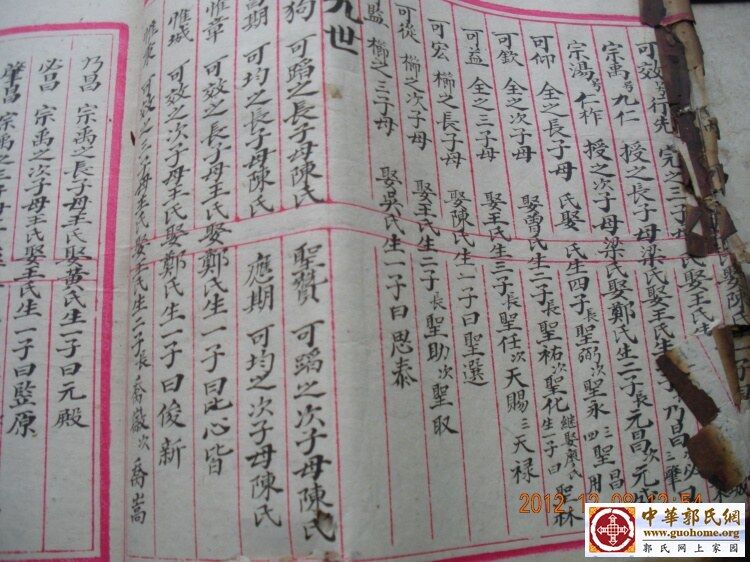 可效 行先 完之二子母
宗禹号九仁 授之長子母梁氏娶王氏生 子 乃昌 次必昌 三肇
宗湯号仁祚 授之次子母梁氏娶鄭氏生二子長元昌次元
可仰 全之長子母 氏娶 氏生四子長聖弼次聖永三聖昌四
可欽 全之次子母 娶曾氏生二子長聖祐次聖化继娶廖氏生一子曰聖林
可益 全之三子母 娶王氏生三子長聖任次天賜三天禄
可宏 櫛之長子母 娶陳氏生一子曰聖選
可從 櫛之次子母 娶王氏生二子長聖助次聖取
可監 櫛之三子母 娶吳氏生一子曰思泰
九世
可蹈之長子母陳氏 聖贊 可蹈之次子母陳氏
期 可均之長子母陳氏 應期 可均之次子母陳氏
惟章 可效之長子母王氏娶鄭氏生一子曰
惟城 可效之次子母王氏娶鄭氏生一子曰俊新
可效之三子母王氏娶王氏生二子長喬嶽次喬嵩
乃昌 宗禹之長子母王氏娶黃氏生一子曰元殿
必昌 宗禹之次子母王氏娶王氏生一子曰監原
肇昌 宗禹之三子母王氏
2012.12.08 12:54
中華郭氏網
www.guohome.org
郭氏网上家园